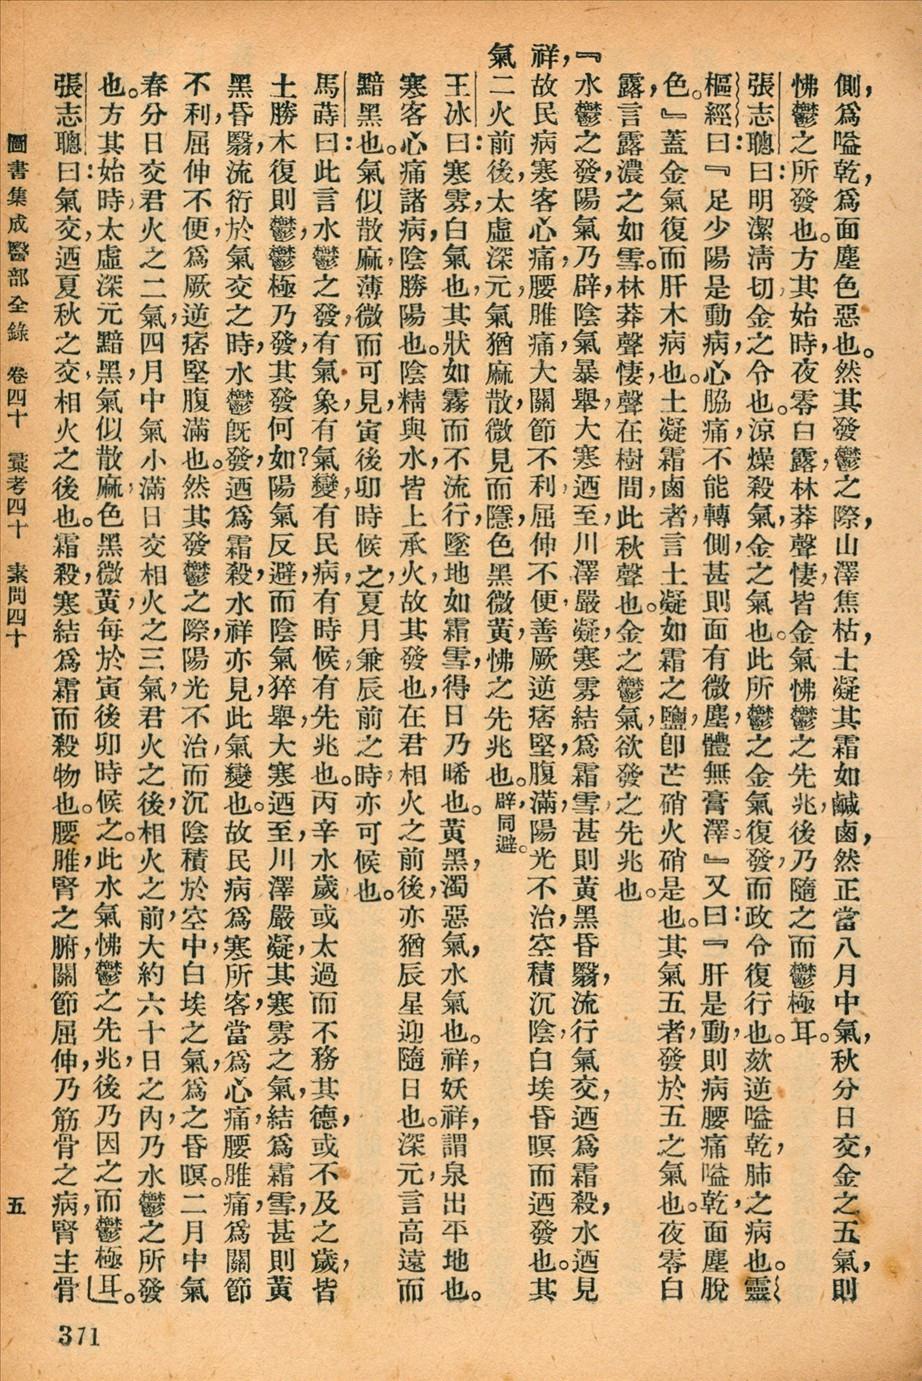 側，爲嗌乾，爲面塵色惡也。然其發鬱之際，山澤焦枯，土凝其霜如鹹鹵，然正當八月中氣，秋分日交，金之五氣，則
怫鬱之所發也。方其始時，夜零白露，林莽聲悽，皆金氣怫鬱之先兆，後乃隨之而鬱極耳。
張志聰曰：明潔淸切，金之令也。涼燥殺氣，金之氣也。此所鬱之金氣復發，而政令復行也。欬逆嗌乾，肺之病也。靈
樞經曰：『足少陽是動病，心脇痛，不能轉側，甚則面有微塵，體無膏澤。』又曰：『肝是動，則病腰痛嗌乾，面塵脫
色。』蓋金氣復而肝木病也。土凝霜鹵者，言土凝如霜之鹽，卽芒硝火硝是也。其氣五者，發於五之氣也。夜零白
露，言露濃之如雪。林莽聲悽，聲在樹間，此秋聲也。金之鬱氣，欲發之先兆也。
『水鬱之發，陽氣乃辟，陰氣暴舉，大寒迺至，川澤嚴凝，寒雰結爲霜雪，甚則黃黑昏翳，流行氣交，迺爲霜殺，水迺見
祥，故民病寒客心痛，腰脽痛，大關節不利，屈伸不便，善厥逆，痞堅，腹滿，陽光不治，空積沉陰，白埃昏暝而迺發也。其
氣二火前後，太虛深元，氣猶麻散，微見而隱，色黑微黃，怫之先兆也。辟，同避。
王冰曰：寒雰，白氣也，其狀如霧而不流行，墜地如霜雪，得日乃晞也。黃黑，濁惡氣，水氣也。祥，妖祥，謂泉出平地也。
寒客心痛諸病，陰勝陽也。陰精與水，皆上承火，故其發也，在君相火之前後，亦猶辰星迎隨日也。深元，言高遠而
黯黑也。氣似散麻，薄微而可見，寅後卯時候之，夏月兼辰前之時，亦可候也。
馬蒔曰：此言水鬱之發，有氣象，有氣變，有民病，有時候，有先兆也。丙辛水歲，或太過而不務其德，或不及之歲，皆
土勝木復則鬱，鬱極乃發，其發何如？陽氣反避，而陰氣猝舉，大寒迺至，川澤嚴凝，其寒雰之氣，結爲霜雪，甚則黃
黑昏翳，流衍於氣交之時，水鬱旣發，迺爲霜殺，水祥亦見，此氣變也。故民病爲寒所客，當爲心痛，腰脽痛，爲關節
不利，屈伸不便，爲厥逆，痞堅腹滿也。然其發鬱之際，陽光不治，而沉陰積於空中，白埃之氣，爲之昏暝。二月中氣
春分日交君火之二氣，四月中氣小滿日交相火之三氣，君火之後，相火之前，大約六十日之內，乃水鬱之所發
也。方其始時，太虛深元黯黑，氣似散麻，色黑微黃，每於寅後卯時候之。此水氣怫鬱之先兆，後乃因之而鬱極耳。
張志聰曰：氣交，迺夏秋之交，相火之後也。霜殺，寒結爲霜而殺物也。腰脽，腎之腑，關節屈伸，乃筋骨之病，腎主骨
圖書集成醫部全錄　卷四十　彙考四十　素問四十　五
371